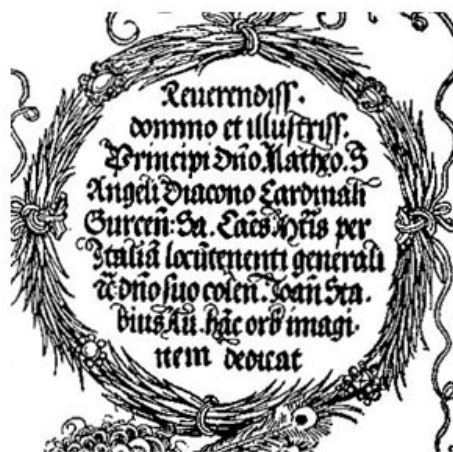 Reuerendiss.
domino et illustriss.
Principi Dño. Matheo. S
Angeli Diacono Cardinali
Gurceñ: Sa. Caes. Mtis per
Italiã locũtenenti generali
dño suo coleñ. Ioañ Sta-
bius Au. hãc orb imagi-
nem dedicat